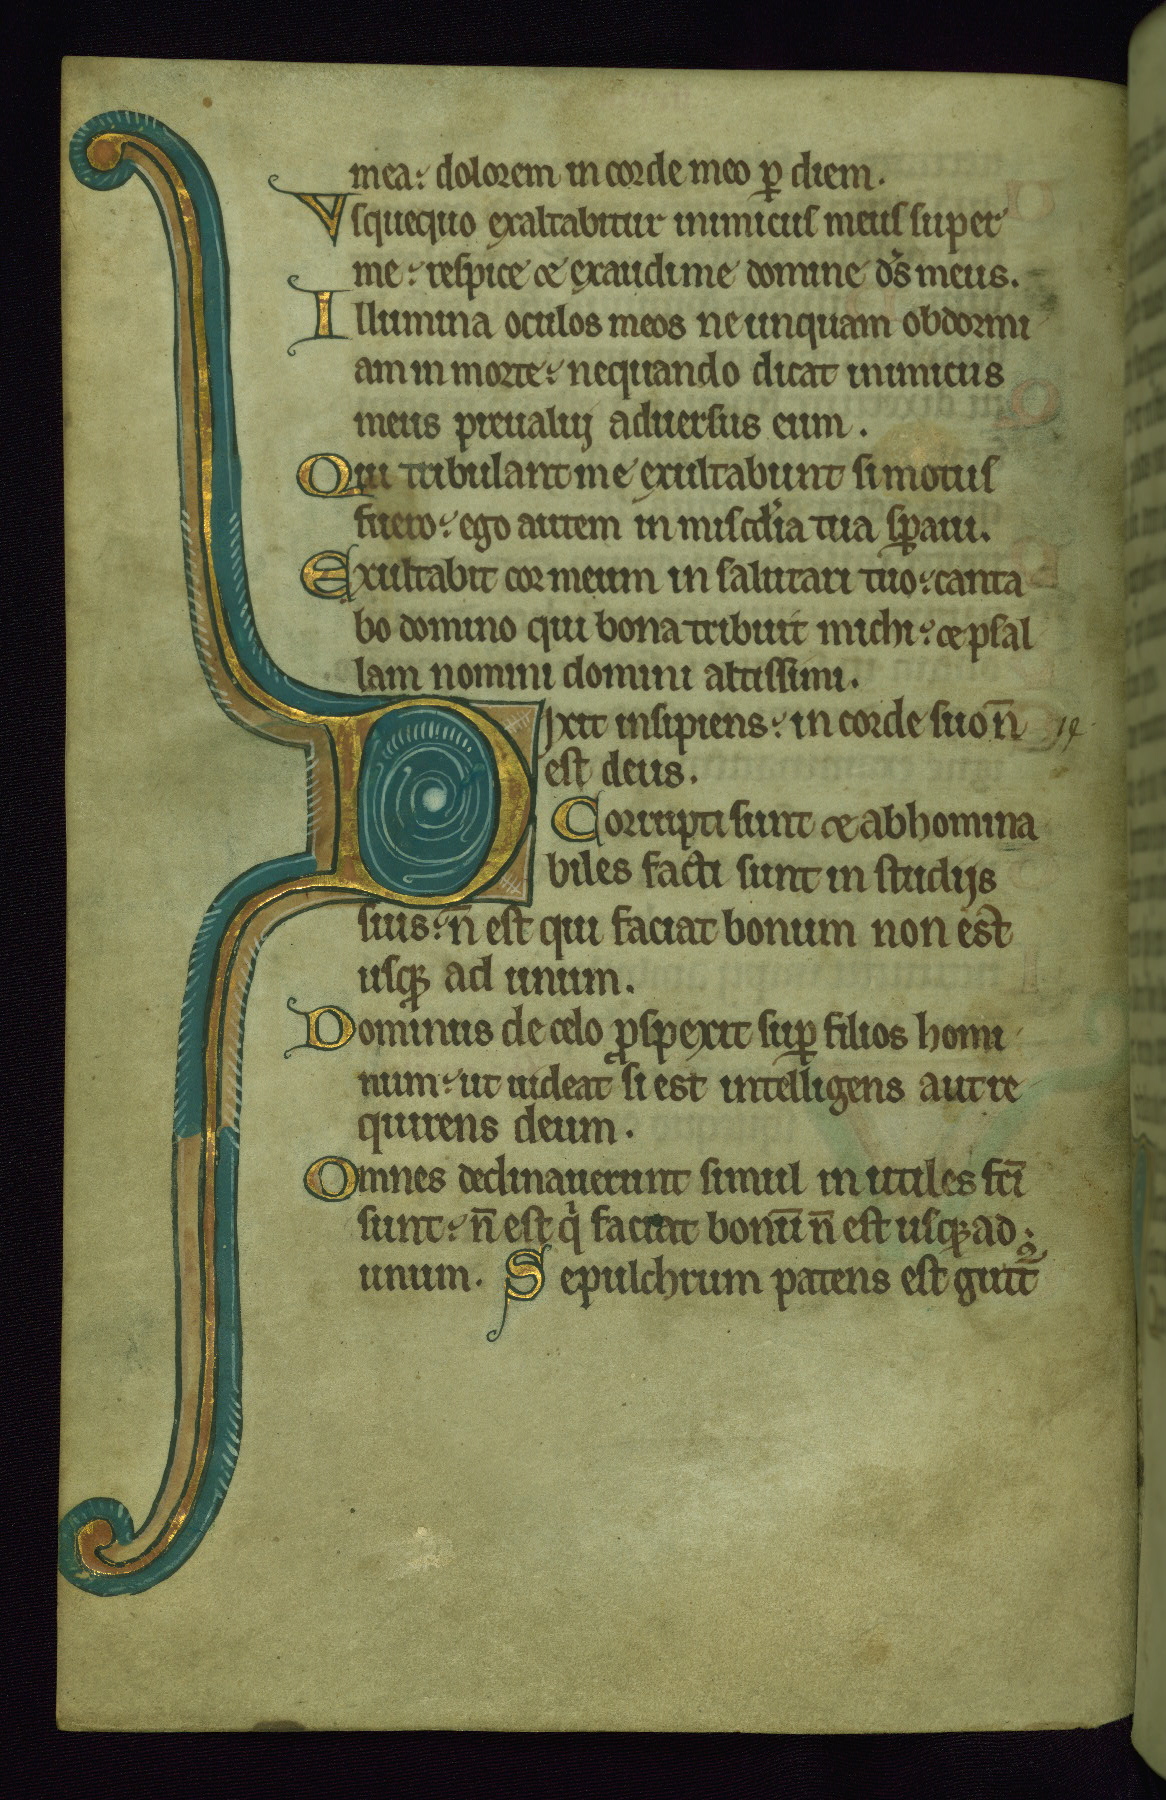 mea: dolorem in corde meo ꝑ diem.
Vsquequo exaltabitur inimicus meus super
me: respice & exaudi me domine ds̄ meus.
Illumina oculos meos ne unquam obdormi
am in morte: nequando dicat inimicus
meus preualuj aduersus eum.
Qui tribulant me exultabunt si motus
fuero: ego autem in misc̄dia tua sꝑaui.
Exultabit cor meum in salutari tuo: canta
bo domino qui bona tribuit michi: & psal
lam nomini domini altissimi.
Dixit insipiens: in corde suo n̄
est deus.
Corrupti sunt & abhomina
biles facti sunt in studijs
suis: n̄ est qui faciat bonum non est
usqꝫ ad unum.
Dominus de celo ꝓspexit suꝑ filios homi
num: ut uideat si est intelligens aut re
quirens deum.
Omnes declinauerunt simul in utiles fc̄i
sunt: n̄ est qͥ faciat bonū n̄ est usqꝫ ad
unum. Sepulchrum patens est gutt᷑